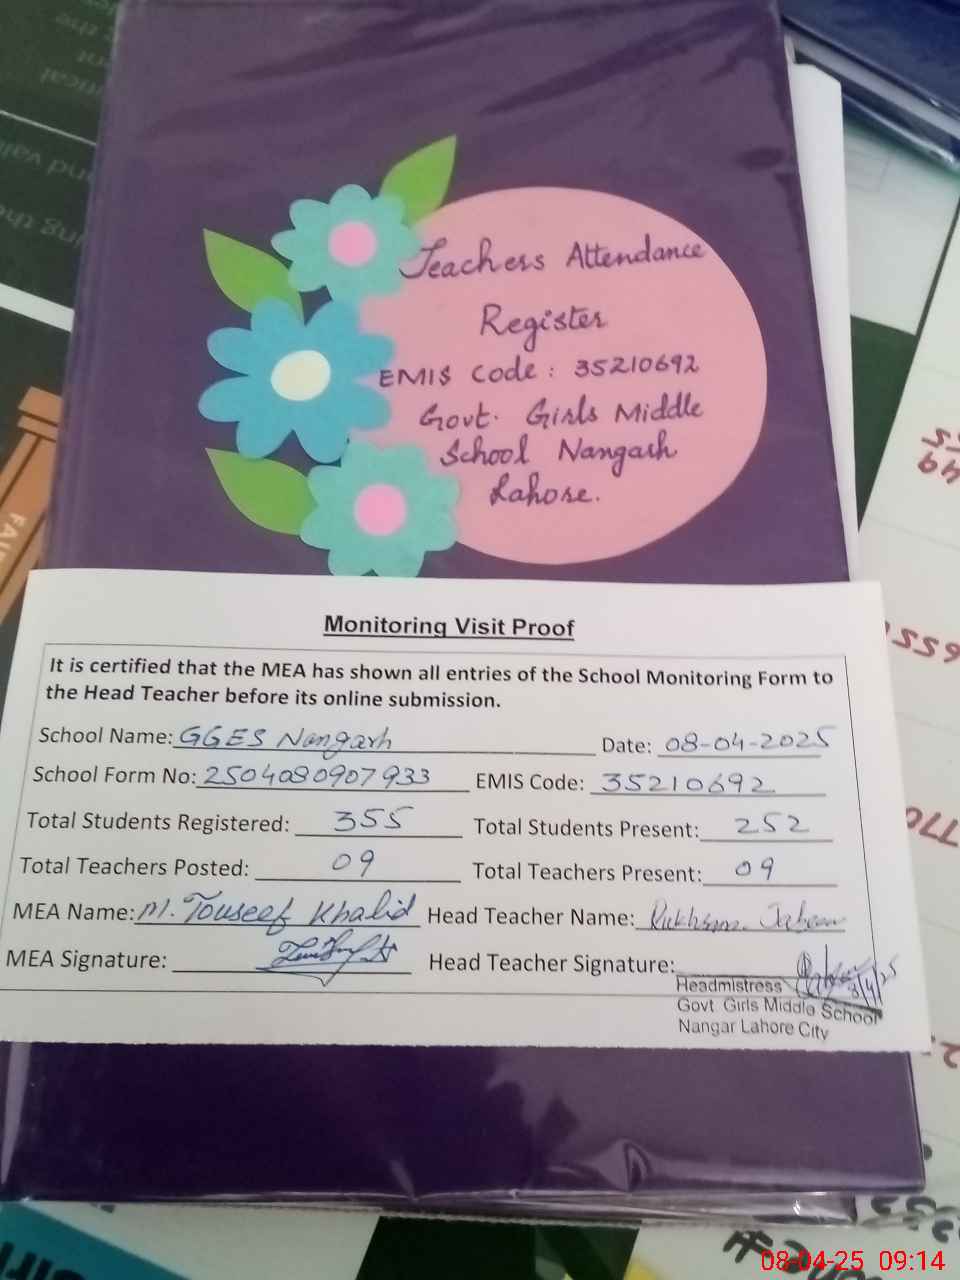 Teachers Attendance
Register
EMIS Code: 35210692
Govt. Girls Middle
School Nangarh
Lahore.
Monitoring Visit Proof
It is certified that the MEA has shown all entries of the School Monitoring Form to
the Head Teacher before its online submission.
School Name: GGES Nangarh Date: 08-04-2025
School Form No: 2504080907933 EMIS Code: 35210692
Total Students Registered: 355 Total Students Present: 252
Total Teachers Posted: 09 Total Teachers Present: 09
MEA Name: M. Touseef Khalid Head Teacher Name:
MEA Signature: Head Teacher Signature:
8/4/25
Headmistress
Govt Girls Middle School
Nangar Lahore City
08-04-25 09:14